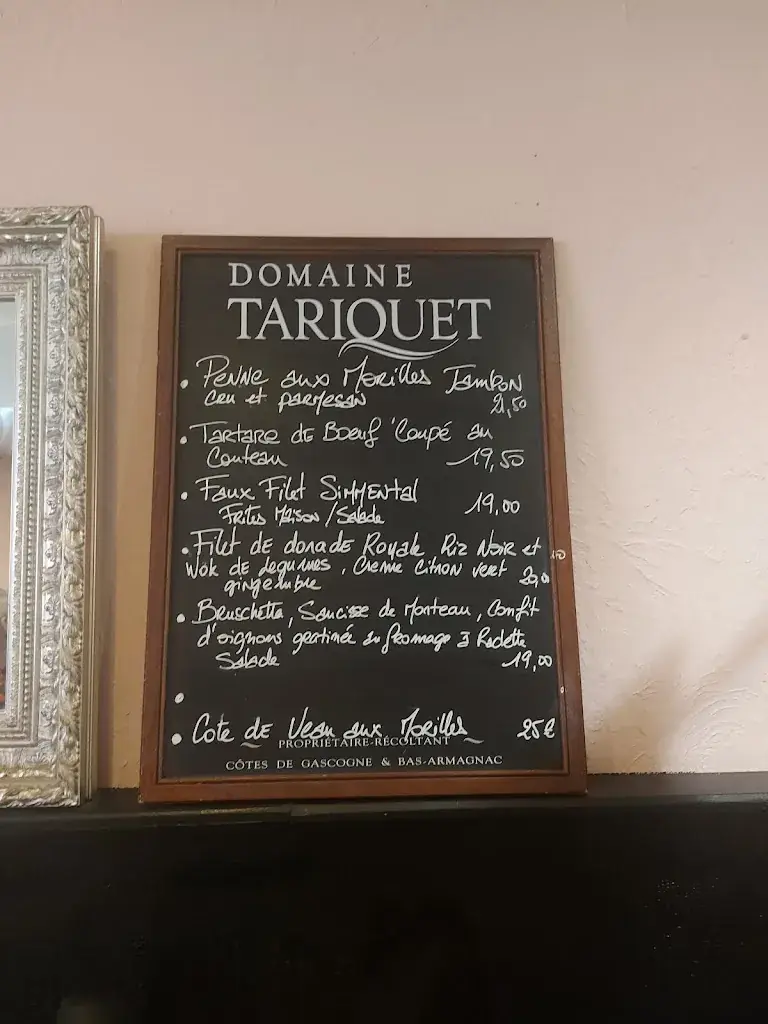 DOMAINE
TARIQUET
• Penne aux Morilles Jambon
cru et parmesan 21,50
• Tartare de Boeuf Coupé au
Couteau 19,50
• Faux Filet Simmental 19,00
Frites Maison / Salade
• Filet de dorade Royale, Riz Noir et
Wok de legumes, Creme Citron vert
gingembre
• Bruschetta, Saucisse de Morteau, Confit
d'oignons gratinée au fromage à Raclette
Salade 19,00
•
• Cote de Veau aux Morilles 25€
PROPRIÉTAIRE-RÉCOLTANT
CÔTES DE GASCOGNE & BAS-ARMAGNAC